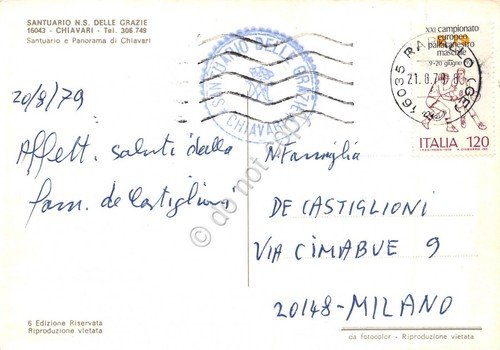 SANTUARIO N.S. DELLE GRAZIE
16043 - CHIAVARI - Tel. 306.749
Santuario e Panorama di Chiavari
20/8/79
Affett. saluti dalla
fam. de Castiglioni
6 Edizione Riservata
Riproduzione vietata
SANTUARIO DELLE GRAZIE
CHIAVARI
XXI campionato
europeo
pallacanestro
maschile
9-20 giugno
16035 RAPALLO (GE)
21.8.79
ITALIA 120
Famiglia
DE CASTIGLIONI
VIA CIMABUE 9
20148-MILANO
da fotocolor - Riproduzione vietata
do not copy